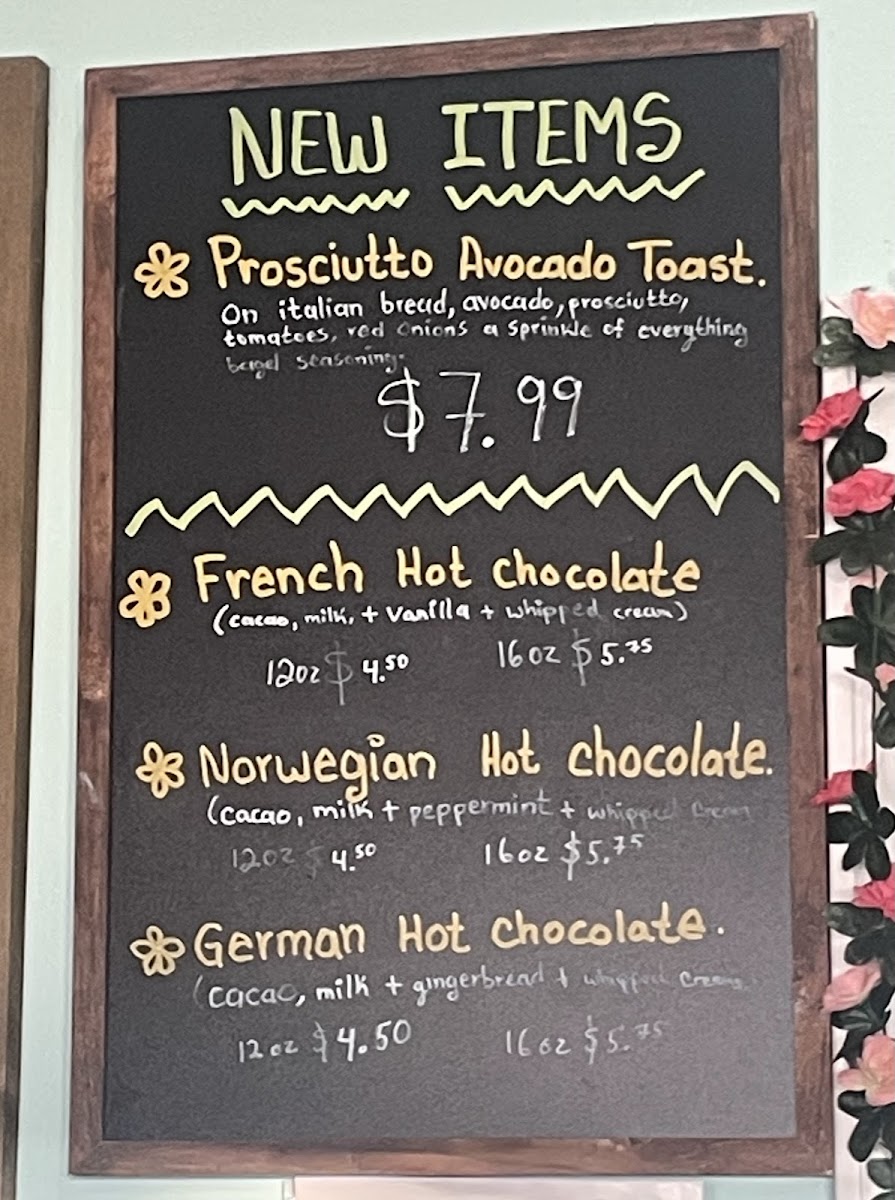 NEW ITEMS
Prosciutto Avocado Toast.
On italian bread, avocado, prosciutto,
tomatoes, red onions a sprinkle of everything
bagel seasoning.
$7.99
French Hot chocolate
(cacao, milk, + Vanilla + whipped cream)
12oz $4.50 16oz $5.75
Norwegian Hot chocolate.
(cacao, milk + peppermint + whipped cream
12oz $4.50 16oz $5.75
German Hot chocolate.
(cacao, milk + gingerbread + whipped cream
12oz $4.50 16oz $5.75